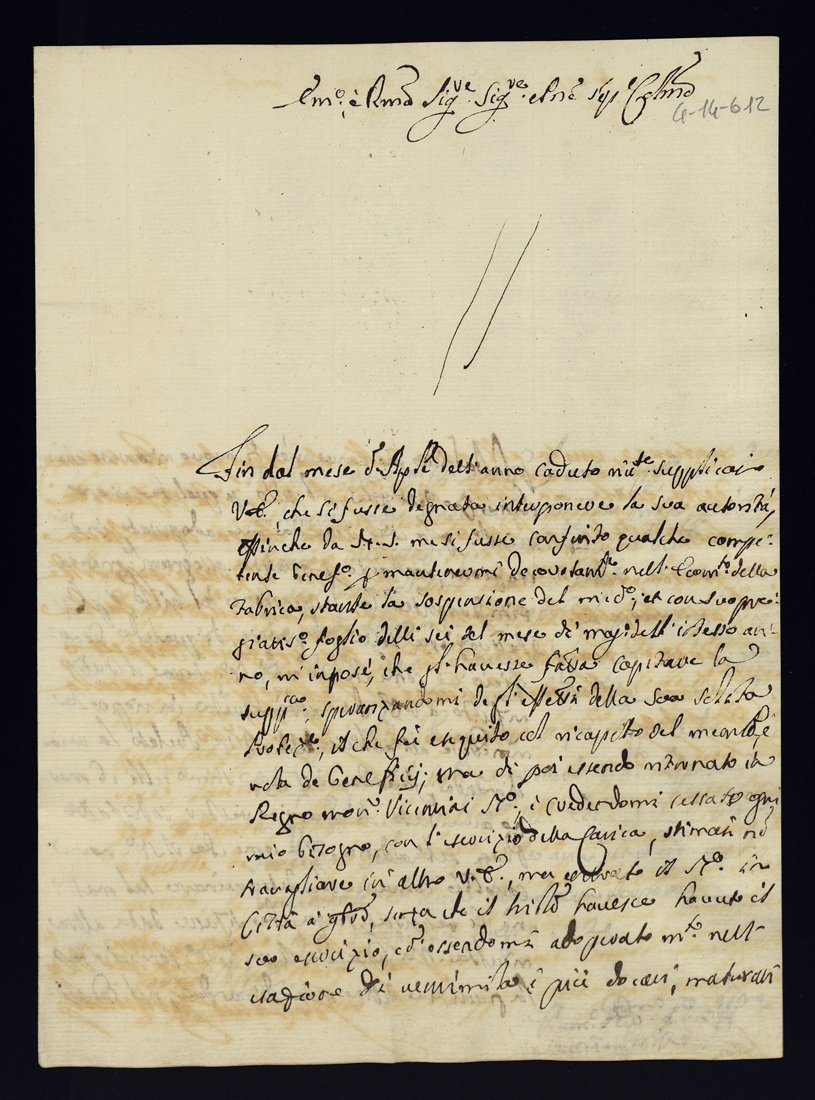 Em.o e Rmo Sig.re Sig.re e Pne
4-14-612
Fin dal mese d'Aple dell'anno caduto supplicai
V.E., che si fusse degnata interponere la sua autorità,
affinche da N.S. mi si fusse conferito qualche compe-
tente Benef.o p mantenermi nell' della
Fabrica, stante la sospensione del med.o; et con suo pre-
giatis.o foglio delli sei del mese di mag. dell'istesso an-
no, m'impose, che havesse fatta capitare la
supp.ca, speranzandomi degl'effetti della sua solita
Protez.e, il che fu eseguito col ricapito del meml, e
nota de Beneficij; ma di poi essendo ritornato in
Regno mon.r Vicentini N.o, e credendomi cessato ogni
mio bisogno, con l'esercizio della Carica, stimai nō
travagliare in altro V.E., ma il N.o in
Città senza che il havesse havuto il
suo esercizio, et essendomi adoperato m.to nell'
esazione di ventimila e più docati, maturati